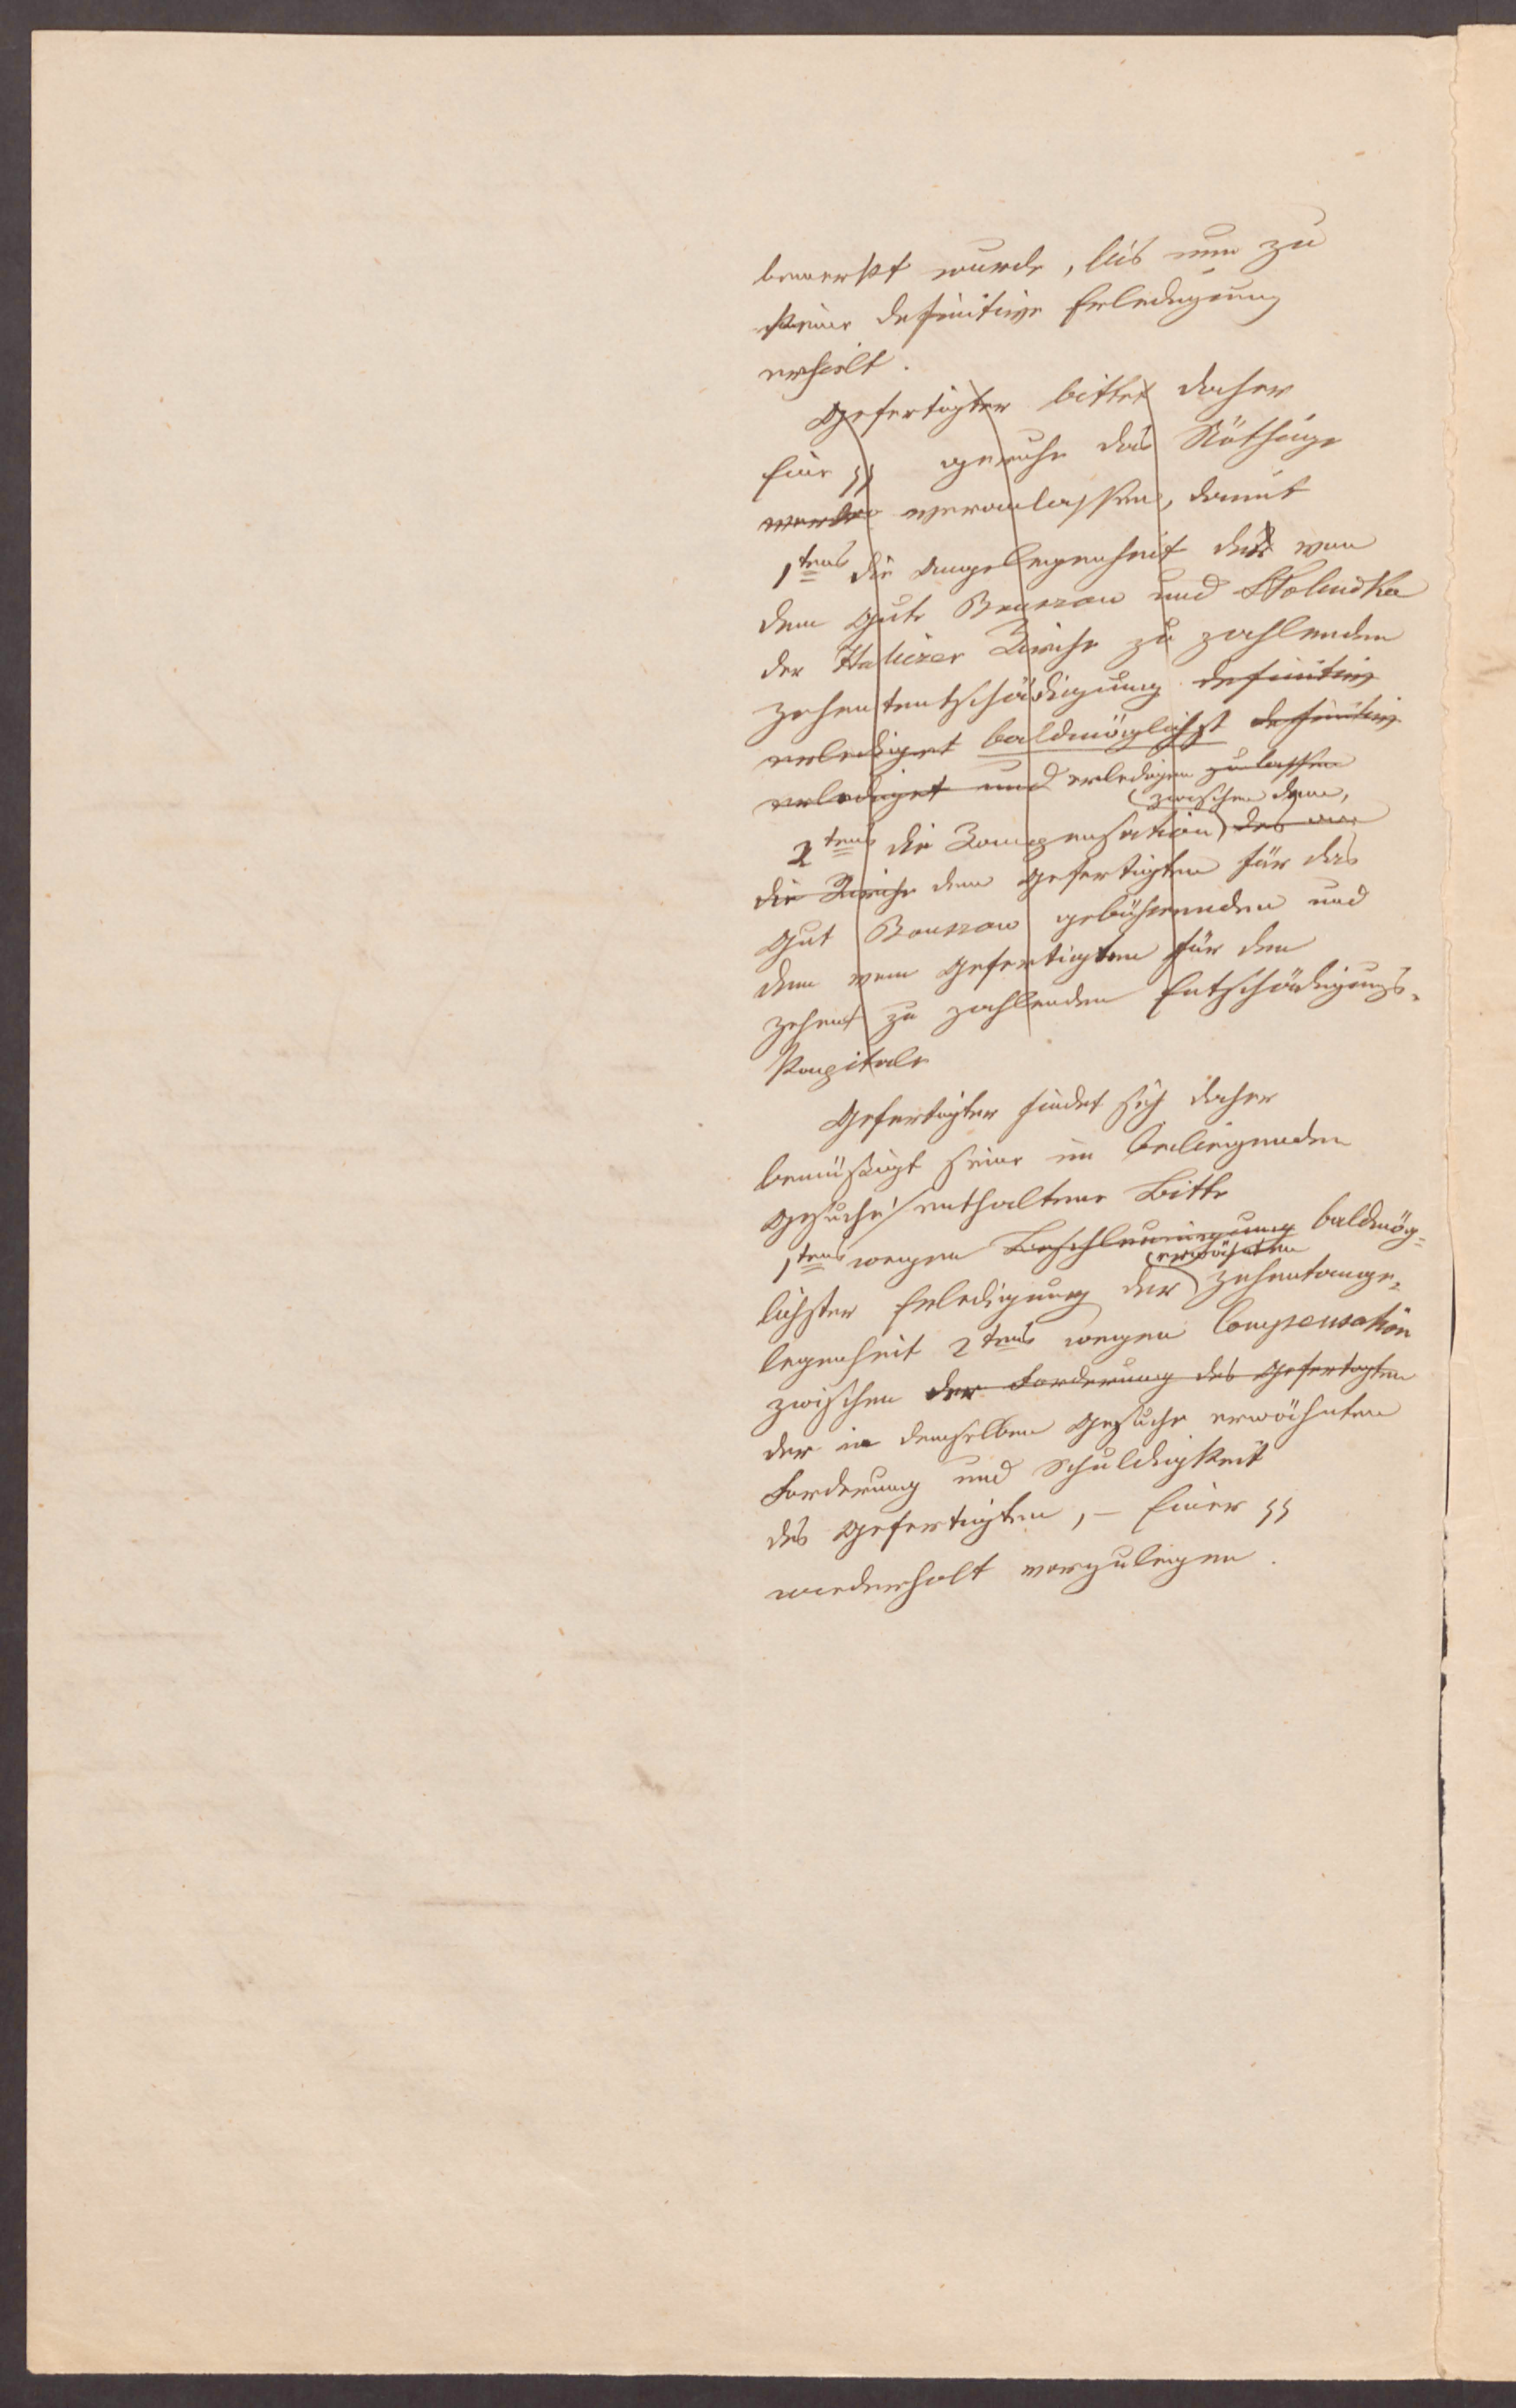 bemerkt wurde, bis nun zu
keiner definitive Erledigung
erhielt.
Gefertigter bittet daher
Eine geruhe das Nöthige
werde veranlassen, damit
1tens die Angelegenheit der von
dem Gute Bouszow und Skoludka
der Haliczer Kirche zu zahlenden
Zehententschädigung definitiv
erlediget baldmöglichst definitiv
erlediget und erledigen zu lassen
zwischen dem,
2tens die Kompensation des von
die Kirche dem Gefertigten für das
Gut Bouszow gebührenden und
dem vom Gefertigten für den
Zehent zu zahlenden Entschädigungs-
kapitale
Gefertigter findet sich daher
bemüßigt seine im beiliegenden
Gesuche enthaltene Bitte
1tens wegen Beschleunigung baldmög-
erwähnten
lichster Erledigung der Zehentange-
legenheit 2tens wegen Compensation
zwischen der Forderung des Gefertigten
der in demselben Gesuche erwähnten
Forderung und Schuldigkeit
des Gefertigten, – Einer
wiederholt vorzulegen.